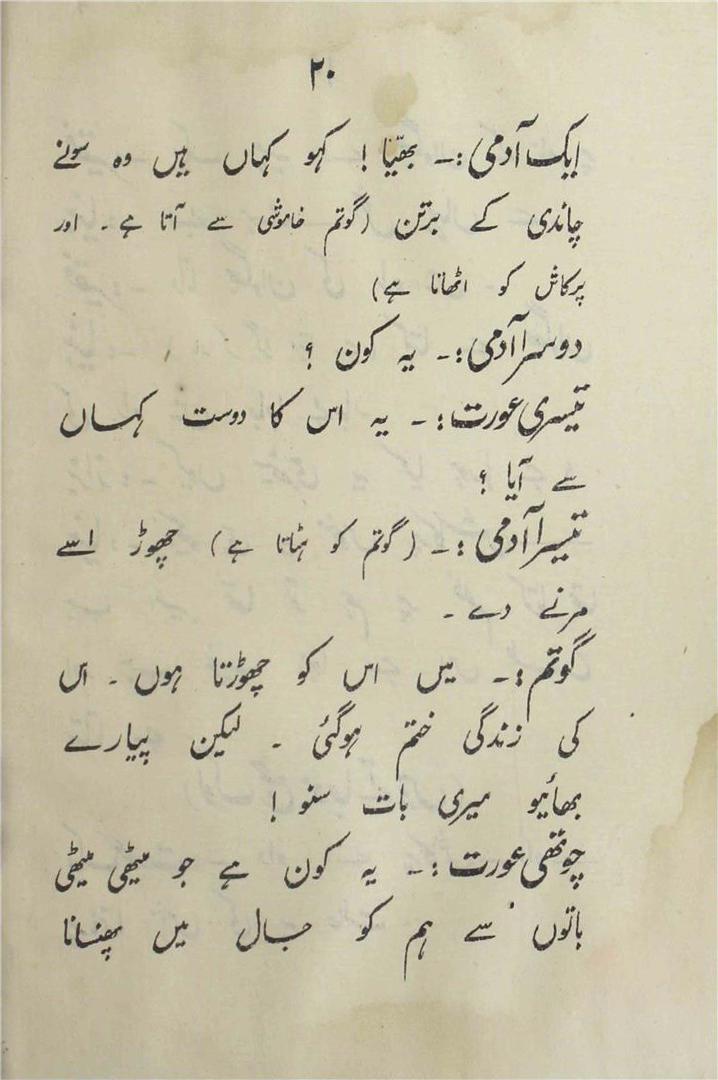 ۲۰
ایک آدمی :۔ بھیّا ! کہو کہاں ہیں وہ سونے
چاندی کے برتن (گوتم خاموشی سے آتا ہے ۔ اور
پرکاش کو اٹھانا ہے)
دوسرا آدمی :۔ یہ کون ؟
تیسری عورت :۔ یہ اس کا دوست کہاں
سے آیا ؟
تیسرا آدمی :۔ (گوتم کو ہٹاتا ہے) چھوڑ اسے
مرنے دے ۔
گوتم :۔ میں اس کو چھوڑتا ہوں ۔ اس
کی زندگی ختم ہوگئی ۔ لیکن پیارے
بھائیو میری بات سنو !
چوتھی عورت :۔ یہ کون ہے جو میٹھی میٹھی
باتوں سے ہم کو جال میں پھنسانا